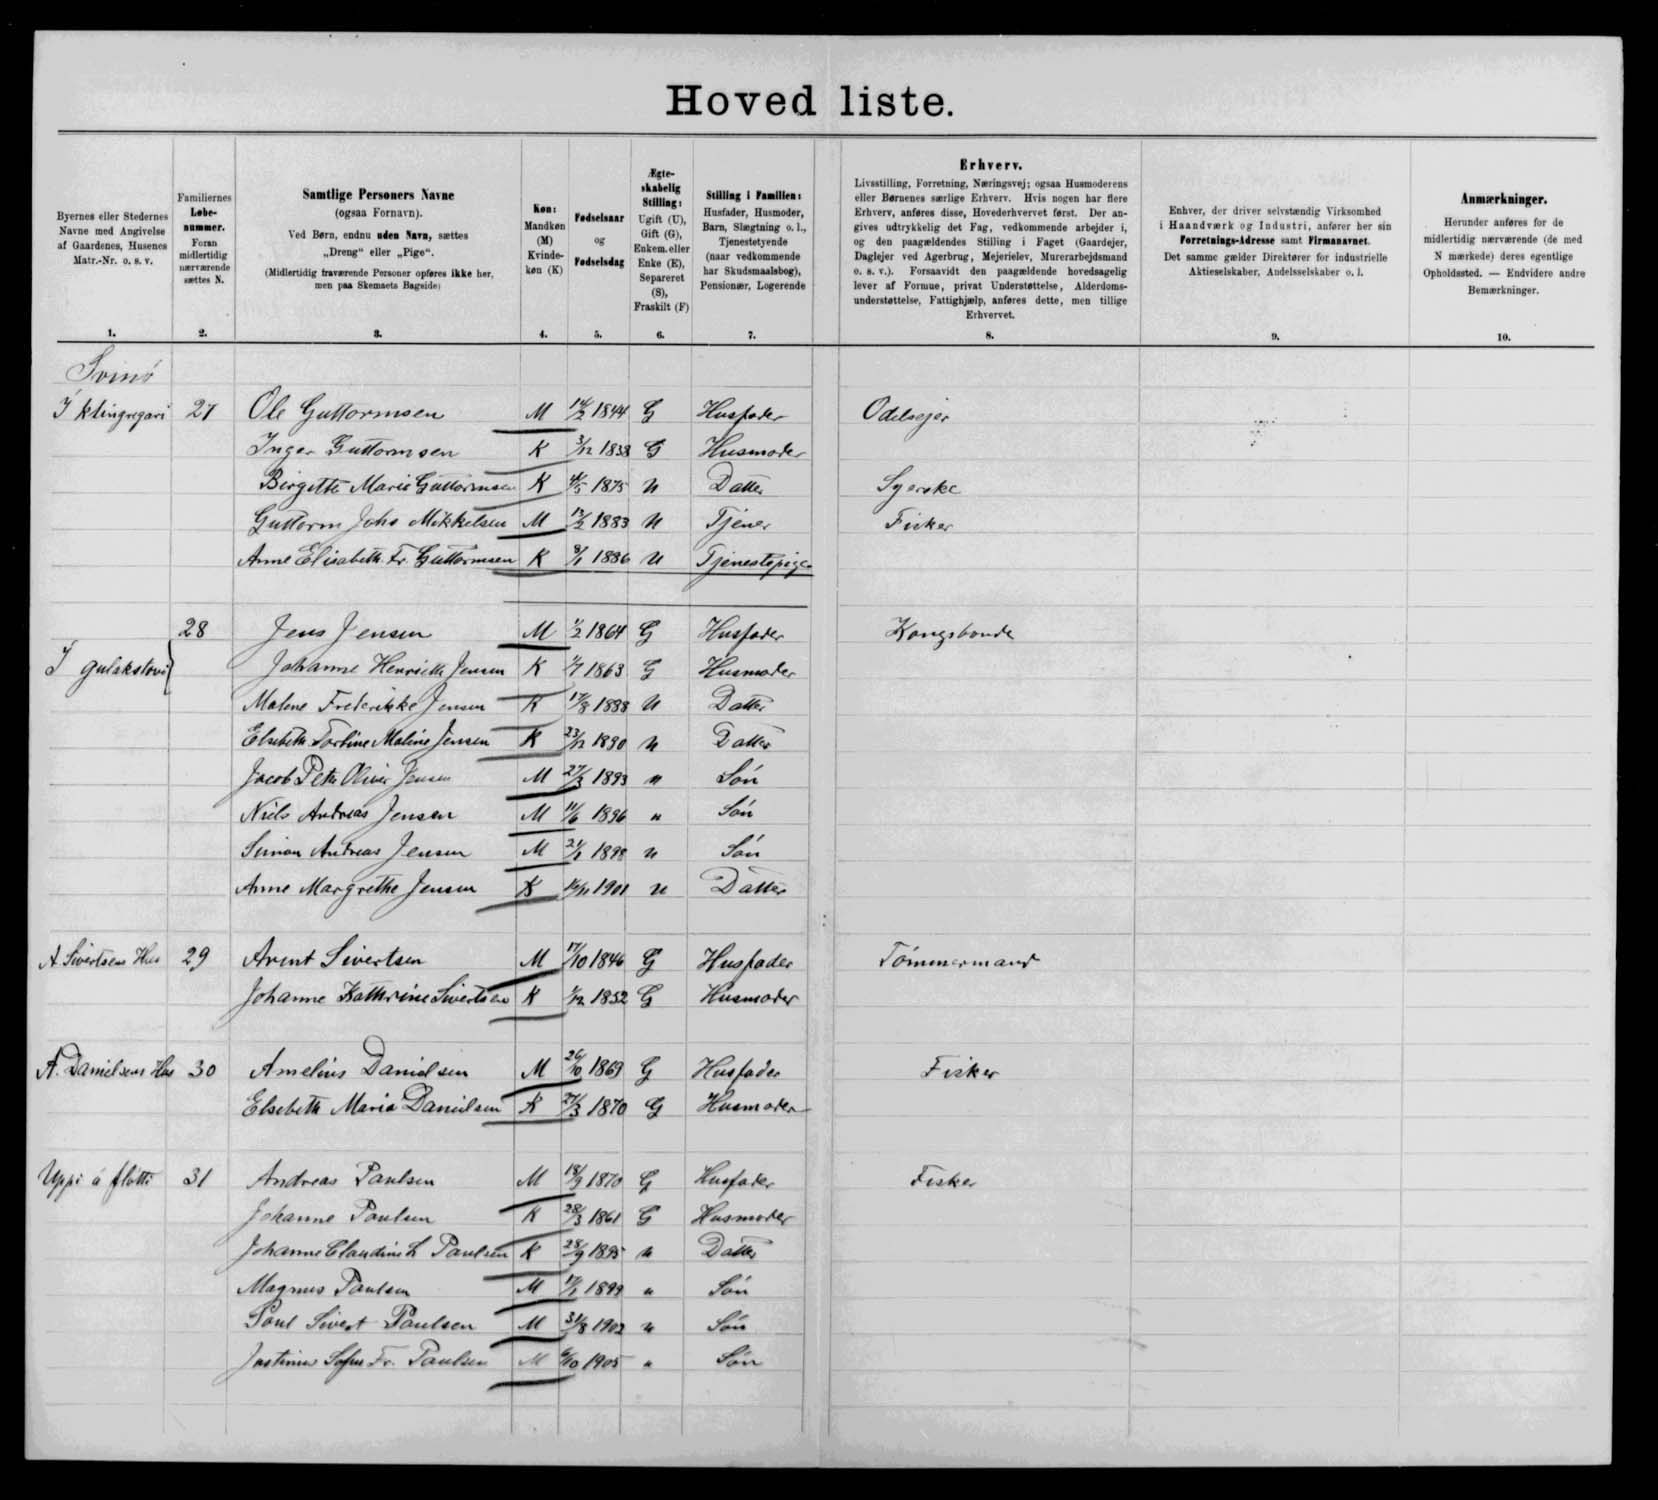 Hoved liste.
Byernes eller Stedernes Navne med Angivelse af Gaardenes, Husenes Matr.-Nr. o. s. v.
1.
Familiernes Løbenummer. Foran midlertidig nærværende sættes N.
2.
Samtlige Personers Navne
(ogsaa Fornavn).
Ved Børn, endnu uden Navn, sættes
„Dreng" eller „Pige".
(Midlertidig fraværende Personer opføres ikke her,
men paa Skemaets Bagside)
3.
Køn:
Mandkøn (M)
Kvindekøn (K)
4.
Fødselsaar
og
Fødselsdag
5.
Ægteskabelig Stilling:
Ugift (U), Gift (G), Enkem. eller Enke (E), Separeret (S), Fraskilt (F)
6.
Stilling i Familien:
Husfader, Husmoder, Barn, Slægtning o. l., Tjenestetyende (naar vedkommende har Skudsmaalsbog), Pensionær, Logerende
7.
Erhverv.
Livsstilling, Forretning, Næringsvej; ogsaa Husmoderens
eller Børnenes særlige Erhverv. Hvis nogen har flere
Erhverv, anføres disse, Hovederhvervet først. Der an-
gives udtrykkelig det Fag, vedkommende arbejder i,
og den paagældendes Stilling i Faget (Gaardejer,
Daglejer ved Agerbrug, Mejerielev, Murerarbejdsmand
o. s. v.). Forsaavidt den paagældende hovedsagelig
lever af Formue, privat Understøttelse, Alderdoms-
understøttelse, Fattighjælp, anføres dette, men tillige
Erhvervet.
8.
Enhver, der driver selvstændig Virksomhed
i Haandværk og Industri, anfører her sin
Forretnings-Adresse samt Firmanavnet.
Det samme gælder Direktører for industrielle
Aktieselskaber, Andelsselskaber o. l.
9.
Anmærkninger.
Herunder anføres for de
midlertidig nærværende (de med
N mærkede) deres egentlige
Opholdssted. — Endvidere andre
Bemærkninger.
10.
Svinø
I klingregari 27 Ole Guttormsen M 14/2 1844 G Husfader Odelsejer
Inger Guttormsen K 3/12 1838 G Husmoder
Birgitte Marie Guttormsen K 4/5 1875 U Datter Syerske
Guttorm Johs Mikkelsen M 12/2 1883 U Tjener Fisker
Anne Elisabeth Fr. Guttormsen K 8/1 1886 U Tjenestepige
28 Jens Jensen M 1/2 1864 G Husfader Kongsbonde
I gulakstovu Johanne Henriette Jensen K 1/7 1863 G Husmoder
Malene Frederikke Jensen K 17/8 1888 U Datter
Elsebeth Torbine Maline Jensen K 23/12 1890 U Datter
Jacob Petr Oliver Jensen M 27/3 1893 " Søn
Niels Andreas Jensen M 11/6 1896 " Søn
Simon Andreas Jensen M 1898 U Søn
Anne Margrethe Jensen K 1901 U Datter
A Sivertsens Hus 29 Arent Sivertsen M 17/10 1846 G Husfader Tømmermand
Johanne Kathrine Sivertsen K 1/12 1852 G Husmoder
A. Danielsens Hus 30 Amelius Danielsen M 26/10 1869 G Husfader Fisker
Elsebeth Maria Danielsen K 27/3 1870 G Husmoder
Uppi á fløtti 31 Andreas Paulsen M 18/9 1870 G Husfader Fisker
Johanne Paulsen K 28/3 1861 G Husmoder
Johanne Claudine L Paulsen K 28/9 1895 U Datter
Magnus Paulsen M 17/1 1899 " Søn
Poul Sivert Paulsen M 31/8 1902 U Søn
Justinus Sofus Fr. Paulsen M 6/10 1905 " Søn